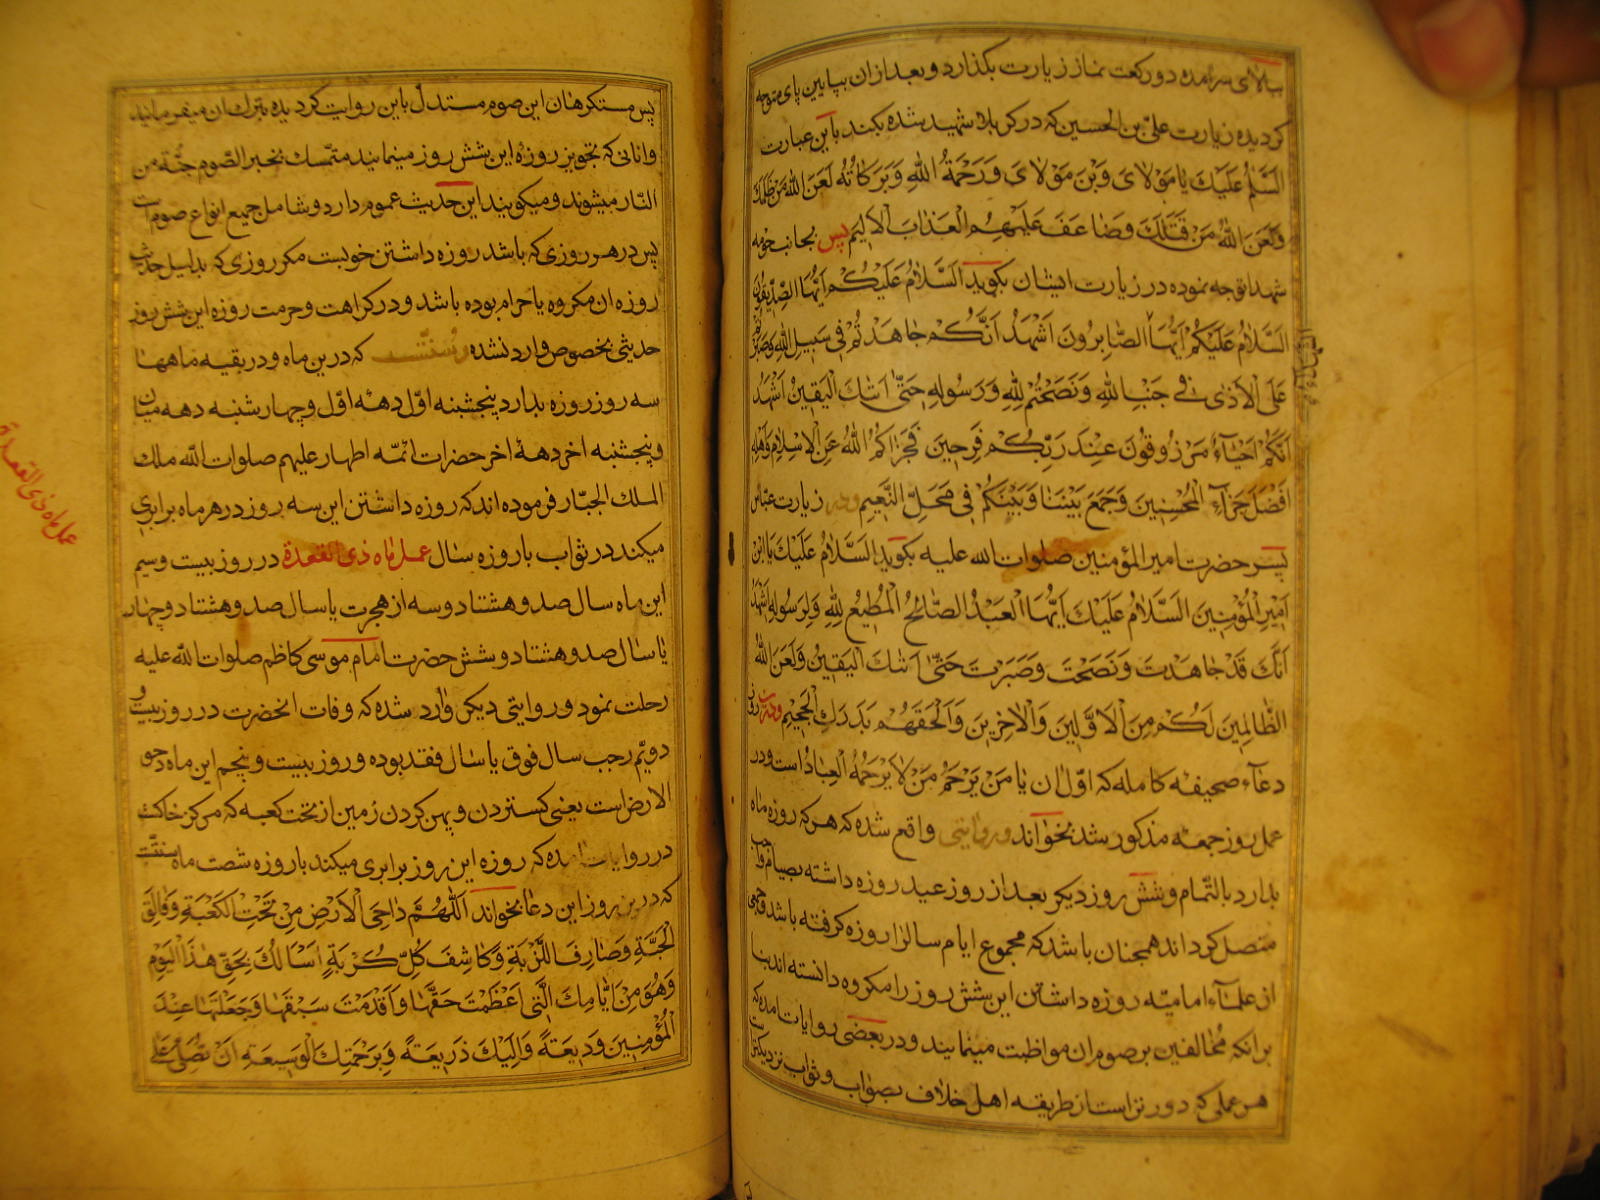 بالای سر امده دو رکعت نماز زیارت بکذارد و بعد از ان بپایین پای متوجه
کردیده زیارت علیّ بن الحسین که در کربلا شهید شده بکند باین عبارت
السَّلٰمُ عَلَیْكَ یٰا مَوْلٰایَ وَبْنَ مَوْلٰایَ وَرَحْمَةُ اللّٰهِ وَبَرَكٰاتُهُ لَعَنَ اللّٰهُ مَنْ ظَلَمَكَ
وَلَعَنَ اللّٰهُ مَنْ قَتَلَكَ وَضٰاعَفَ عَلَیْهِمُ الْعَذٰابَ الْاَلیٖمَ پس بجانب حومه
شهدا توجه نموده در زیارت ایشان بکوید السَّلٰامُ عَلَیْكُمْ اَیُّهَا الصِّدّیٖقُونَ
السَّلٰامُ عَلَیْكُمْ اَیُّهَا الصّٰابِرُونَ اَشْهَدُ اَنَّكُمْ جٰاهَدْتُمْ فیٖ سَبیٖلِ اللّٰهِ وَصَبَرْتُمْ
عَلَی الْاَذٰی فیٖ جَنْبِ اللّٰهِ وَنَصَحْتُمْ لِلّٰهِ وَرَسُولِهِ حَتّٰی اَتٰكَ الْیَقیٖنُ اَشْهَدُ
اَنَّكُمْ اَحْیٰاءٌ مَرْزُوقُونَ عِنْدَ رَبِّكُمْ فَرِحیٖنَ فَجَزٰاكُمُ اللّٰهُ عَنِ الْاِسْلٰامِ وَاَهْلِهِ
اَفْضَلَ جَزٰاءِ الْمُحْسِنیٖنَ وَجَمَعَ بَیْنَنٰا وَبَیْنَكُمْ فیٖ مَحَلِّ النَّعیٖمِ ودر زیارت عباس
پسر حضرت امیر المؤمنین صلوات الله علیه بکوید السَّلٰامُ عَلَیْكَ یَا ابْنَ
اَمیٖرِ الْمُؤْمِنیٖنَ السَّلٰامُ عَلَیْكَ اَیُّهَا الْعَبْدُ الصّٰالِحُ الْمُطیٖعُ لِلّٰهِ وَلِرَسُولِهِ اَشْهَدُ
اَنَّكَ قَدْ جٰاهَدْتَ وَنَصَحْتَ وَصَبَرْتَ حَتّٰی اَتٰكَ الْیَقیٖنُ وَلَعَنَ اللّٰهُ
الظّٰالِمیٖنَ لَكُمْ مِنَ الْاَوَّلیٖنَ وَالْاٰخِریٖنَ وَاَلْحَقَهُمْ بِدَرَكِ الْجَحیٖمِ ودرین روز
دعاء صحیفه کامله که اوّل ان یٰا مَنْ یَرْحَمُ مَنْ لٰا یَرْحَمُهُ الْعِبٰادُ است و در
عمل روز جمعه مذکور شد بخواند و روایتی واقع شده که هر که روزه ماه
بدارد بالتّمام و شش روز دیکر بعد از روز عید روزه داشته بصیام واجب
متصل کرداند همچنان باشد که مجموع ایام سال را روزه کرفته باشد و جمعی
از علمآء امامیّه روزه داشتن این شش روز را مکروه دانسته اند بنا
برانکه مخالفین بر صوم ان مواظبت مینمایند و در بعضی روایات امده که
هر عملی که دورتر است از طریقه اهل خلاف بصواب و ثواب نزدیکتر است
پس مستکرهان این صوم مستدل باین روایت کردیده بترك ان میفرمایند
و انانی که تجویز روزه این شش روز مینمایند متمّسك بخبر الصّوم جنّة من
النّار میشوند و میکویند این حدیث عموم دارد و شامل جمیع انواع صوم است
پس در هر روزی که باشد روزه داشتن خوبست مکر روزی که بدلیل حدیث
روزه ان مکروه یا حرام بوده باشد و در کراهت و حرمت روزه این شش روز
حدیثی بخصوص وارد نشده و سنّتست که درین ماه و در بقیه ماهها
سه روز روزه بدارد پنجشنبه اوّل دهه اوّل و چهارشنبه دهه میان
و پنجشنبه اخر دهۀ اخر حضرات ائمّه اطهار علیهم صلوات اللّٰه ملك
الملك الجبّار فرموده اند که روزه داشتن این سه روز در هر ماه برابری
میکند در ثواب با روزه سال عمل ماه ذی القعدة در روز بیست و سیم
این ماه سال صد و هشتاد و سه از هجرت یا سال صد و هشتاد و چهار
یا سال صد و هشتاد و شش حضرت امام موسی کاظم صلوات اللّٰه علیه
رحلت نمود و روایتی دیکر وارد شده که وفات انحضرت در روز بیست و
دویّم رجب سال فوق یا سال فقد بوده و روز بیست و پنجم این ماه دحو
الارض است یعنی کستردن و پهن کردن زمین از تحت کعبه که مرکز خاکست
در روایات امده که روزه این روز برابری میکند با روزه شصت ماه سنتست
که درین روز این دعا بخواند اَللّٰهُمَّ دٰاحِیَ الْاَرْضِ مِنْ تَحْتِ الْكَعْبَةِ وَفٰالِقَ
الْحَبَّةِ وَصٰارِفَ اللَّزْبَةِ وَكٰاشِفَ كُلِّ كُرْبَةٍ اَسْاَلُكَ بِحَقِّ هٰذَا الْیَوْمِ
وَهُوَ مِنْ اَیّٰامِكَ الَّتیٖ اَعْظَمْتَ حَقَّهٰا وَاَقْدَمْتَ سَبْقَهٰا وَجَعَلْتَهٰا عِنْدَ
الْمُؤْمِنیٖنَ وَدیٖعَةً وَاِلَیْكَ ذَریٖعَةً وَبِرَحْمَتِكَ الْوَسیٖعَةِ اَنْ تُصَلِّیَ عَلٰی
عمل ماه ذی القعدة